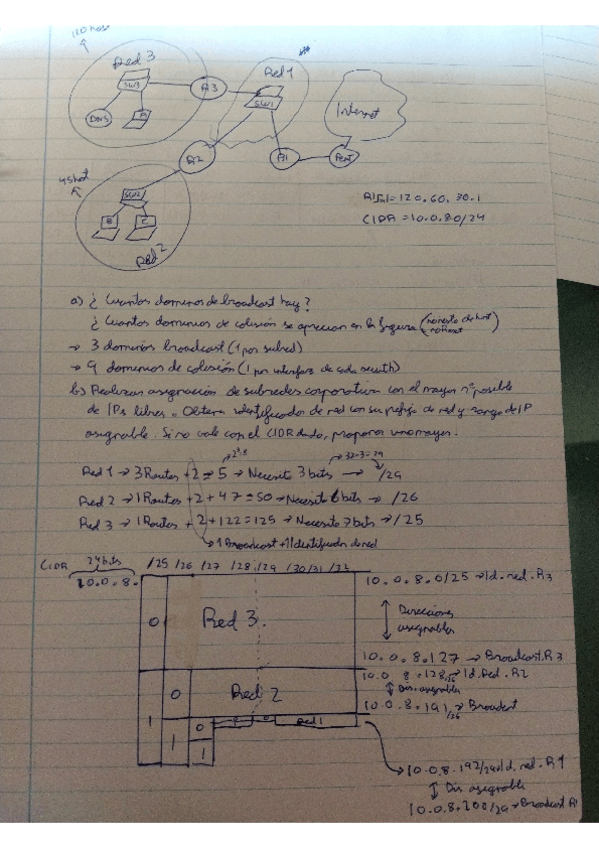 120 host
Red 3
SW3
R3
Red 1
SW1
Internet
DNS
A
R2
R1
45 host
SW2
B
C
Red 2
R1SF1=120.60.30.1
CIDR=10.0.80/24
a) ¿Cuantos dominios de broadcast hay?
¿Cuantos dominios de colisión se aprecian en la figura
→ 3 dominios broadcast (1 por subred)
→ 9 dominios de colisión (1 por interfaz de cada switch)
b) Realizar asignación de subredes corporativa con el mayor nº posible
de IPs libres. Obtener identificador de red con su prefijo de red y rango de IP
asignable. Si no vale con el CIDR dado, proponer uno mayor.
32-3=29
Red 1 → 3 Routers + 2 = 5 → Necesito 3 bits → /29
Red 2 → 1 Routers + 2 + 47 = 50 → Necesito 6 bits → /26
Red 3 → 1 Routers + 2 + 122 = 125 → Necesito 7 bits → /25
→ 1 Broadcast + 1 Identificador de red
CIDR 24 bits /25 /26 /27 /28 /29 /30 /31 /32
10.0.8.
10.0.8.0/25 → Id. red. R3
0
Red 3.
Direcciones
asignables
10.0.8.127 → Broadcast. R3
10.0.8.128/26 → Id. Red. R2
0
Red 2
Dir. asignables
10.0.8.191/26 → Broadcast
1
0
0
Red 1
1
1
10.0.8.192/29 → Id. red. R1
Dir asignable
10.0.8.200/29 → Broadcast R1